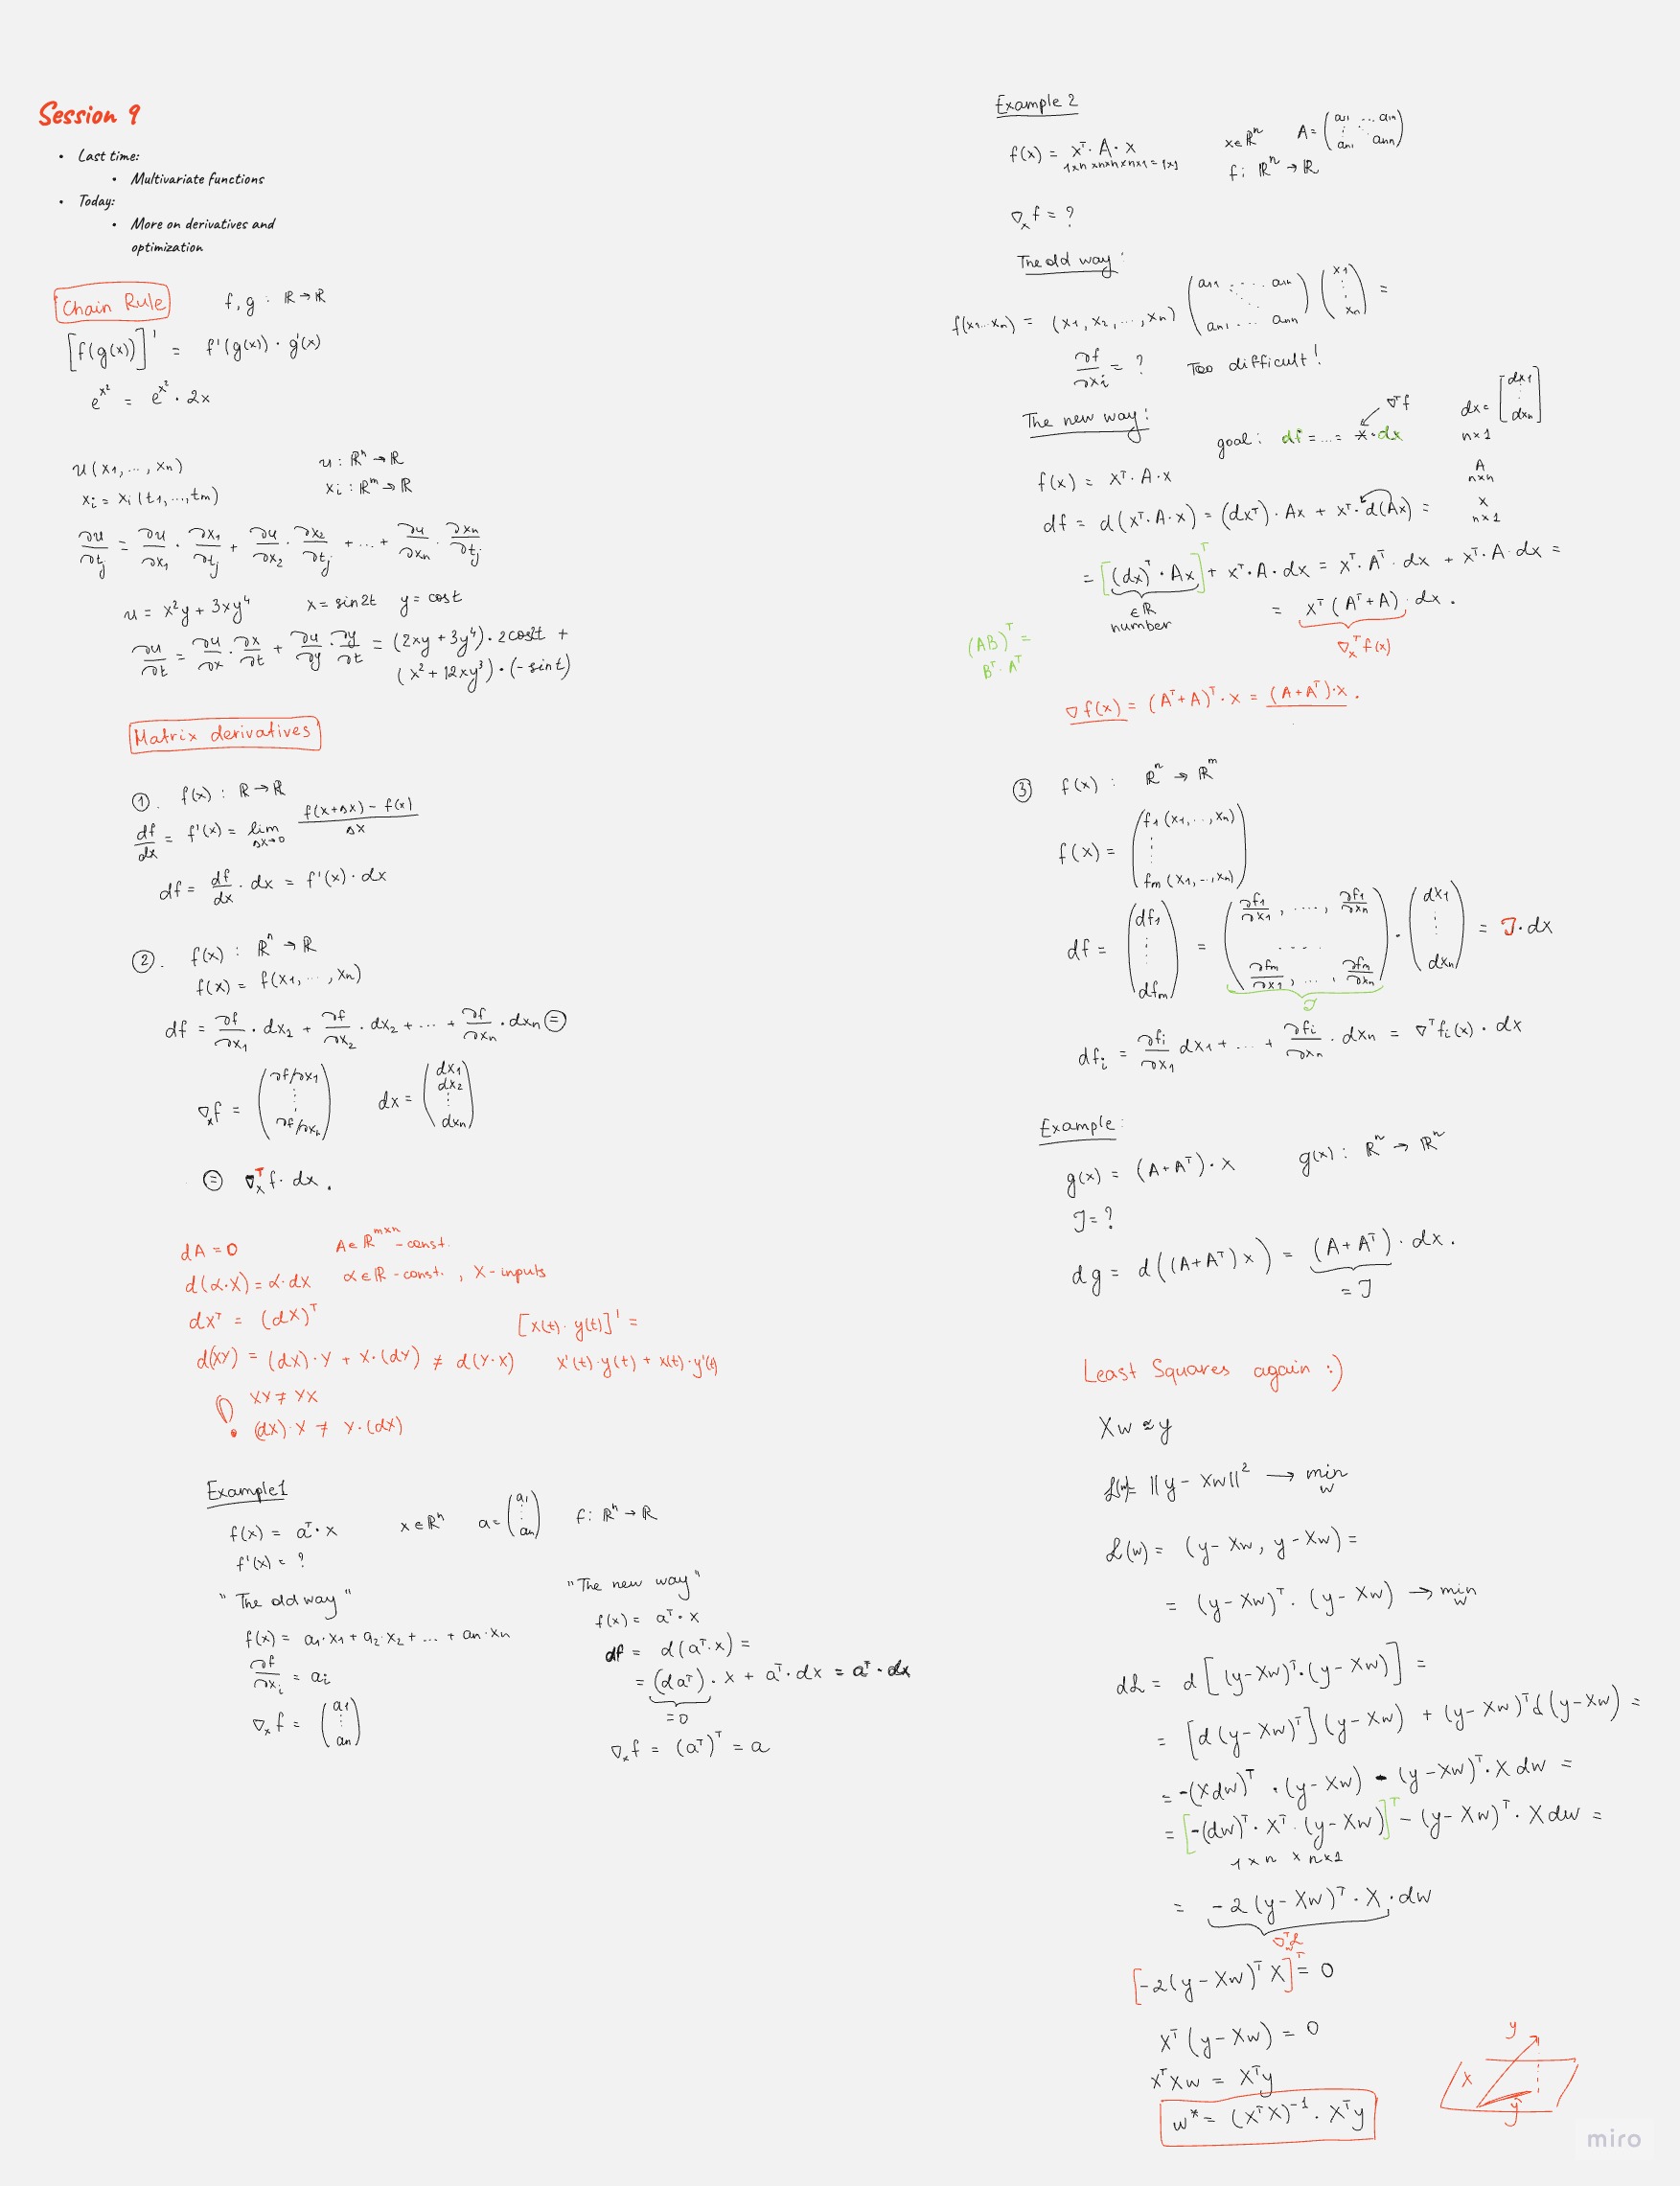 Session 9
• Last time:
• Multivariate functions
• Today:
• More on derivatives and
optimization
Chain Rule f, g : ℝ → ℝ
[f(g(x))]' = f'(g(x)) · g'(x)
e^{x²} = e^{x²} · 2x
u(x₁, ..., xₙ) u : ℝⁿ → ℝ
xᵢ = xᵢ(t₁, ..., tₘ) xᵢ : ℝᵐ → ℝ
∂u/∂tⱼ = ∂u/∂x₁ · ∂x₁/∂tⱼ + ∂u/∂x₂ · ∂x₂/∂tⱼ + ... + ∂u/∂xₙ · ∂xₙ/∂tⱼ
u = x²y + 3xy⁴ x = sin2t y = cost
∂u/∂t = ∂u/∂x · ∂x/∂t + ∂u/∂y · ∂y/∂t = (2xy + 3y⁴) · 2cos2t +
(x² + 12xy³) · (-sint)
Matrix derivatives
①. f(x) : ℝ → ℝ
df/dx = f'(x) = lim_{Δx→0} (f(x+Δx) - f(x))/Δx
df = df/dx · dx = f'(x) · dx
②. f(x) : ℝⁿ → ℝ
f(x) = f(x₁, ..., xₙ)
df = ∂f/∂x₁ · dx₁ + ∂f/∂x₂ · dx₂ + ... + ∂f/∂xₙ · dxₙ ⊜
∇ₓf = (∂f/∂x₁ ⋮ ∂f/∂xₙ) dx = (dx₁ dx₂ ⋮ dxₙ)
⊜ ∇ₓᵀf · dx.
dA = 0 A∈ℝ^{m×n} - const.
d(α·X) = α·dX α∈ℝ - const., X - inputs
dXᵀ = (dX)ᵀ [x(t) · y(t)]' =
d(XY) = (dX)·Y + X·(dY) ≠ d(Y·X) x'(t)·y(t) + x(t)·y'(t)
! XY ≠ YX
(dX)·Y ≠ Y·(dX)
Example 1
f(x) = aᵀ·x x∈ℝⁿ a = (a₁ ⋮ aₙ) f: ℝⁿ → ℝ
f'(x) = ?
"The old way"
f(x) = a₁·x₁ + a₂·x₂ + ... + aₙ·xₙ
∂f/∂xᵢ = aᵢ
∇ₓf = (a₁ ⋮ aₙ)
"The new way"
f(x) = aᵀ·x
df = d(aᵀ·x) =
= (daᵀ)·x + aᵀ·dx = aᵀ·dx
=0
∇ₓf = (aᵀ)ᵀ = a
Example 2
f(x) = xᵀ·A·x x∈ℝⁿ A = (a₁₁ ... a₁ₙ ⋮ ⋱ aₙ₁ aₙₙ)
1×n×n×n×n×1 = 1×1 f: ℝⁿ → ℝ
∇ₓf = ?
The old way:
f(x₁...xₙ) = (x₁, x₂, ..., xₙ) (a₁₁ ... a₁ₙ ⋱ aₙ₁ ... aₙₙ) (x₁ ⋮ xₙ) =
∂f/∂xᵢ = ? Too difficult!
The new way:
goal: df = ... = *·dx ∇ᵀf dx = [dx₁ ⋮ dxₙ]
n×1
f(x) = xᵀ·A·x A
n×n
df = d(xᵀ·A·x) = (dxᵀ)·Ax + xᵀ·d(Ax) = x
n×1
= [(dx)ᵀ·Ax]ᵀ + xᵀ·A·dx = xᵀ·Aᵀ·dx + xᵀ·A·dx =
∈ℝ
number
= xᵀ(Aᵀ+A)·dx.
∇ₓᵀf(x)
(AB)ᵀ =
Bᵀ·Aᵀ
∇f(x) = (Aᵀ+A)ᵀ·x = (A+Aᵀ)·x.
③ f(x) : ℝⁿ → ℝᵐ
f(x) = (f₁(x₁, ..., xₙ) ⋮ fₘ(x₁, ..., xₙ))
df = (df₁ ⋮ dfₘ) = (∂f₁/∂x₁, ...., ∂f₁/∂xₙ .... ∂fₘ/∂x₁, ..., ∂fₘ/∂xₙ) · (dx₁ ⋮ dxₙ) = J·dx
J
dfᵢ = ∂fᵢ/∂x₁ dx₁ + ... + ∂fᵢ/∂xₙ · dxₙ = ∇ᵀfᵢ(x) · dx
Example:
g(x) = (A+Aᵀ)·x g(x) : ℝⁿ → ℝⁿ
J = ?
dg = d((A+Aᵀ)x) = (A+Aᵀ)·dx.
= J
Least Squares again :)
Xw ≈ y
ℒ(w) = ||y - Xw||² → min_w
ℒ(w) = (y - Xw, y - Xw) =
= (y - Xw)ᵀ · (y - Xw) → min_w
dℒ = d[(y-Xw)ᵀ·(y-Xw)] =
= [d(y-Xw)ᵀ](y-Xw) + (y-Xw)ᵀd(y-Xw) =
= -(Xdw)ᵀ·(y-Xw) - (y-Xw)ᵀ·Xdw =
= [-(dw)ᵀ·Xᵀ·(y-Xw)]ᵀ - (y-Xw)ᵀ·Xdw =
1×n × n×1
= -2(y-Xw)ᵀ·X·dw
∇_wᵀℒ
[-2(y-Xw)ᵀX]ᵀ = 0
Xᵀ(y-Xw) = 0
XᵀXw = Xᵀy
w* = (XᵀX)⁻¹·Xᵀy
y
X
ŷ
miro